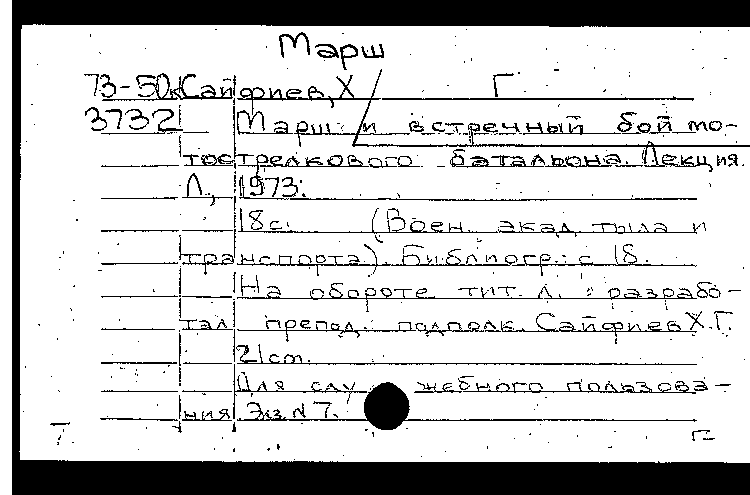 Марш
73-50к Сайфиев, Х Г
3732 Марш и встречный бой мо-
тострелкового батальона. Лекция.
Л., 1973.
18с. (Воен. акад. тыла и
транспорта). Библиогр.: с 18.
На обороте тит. л.: разрабо-
тал препод. подполк. Сайфиев Х.Г.
21 cm.
Для служебного пользова-
ния Экз № 7.
Т. Г2